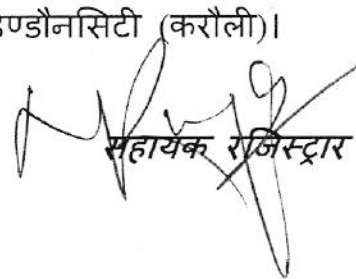 ण्डौनसिटी (करौली)।
सहायक रजिस्ट्रार